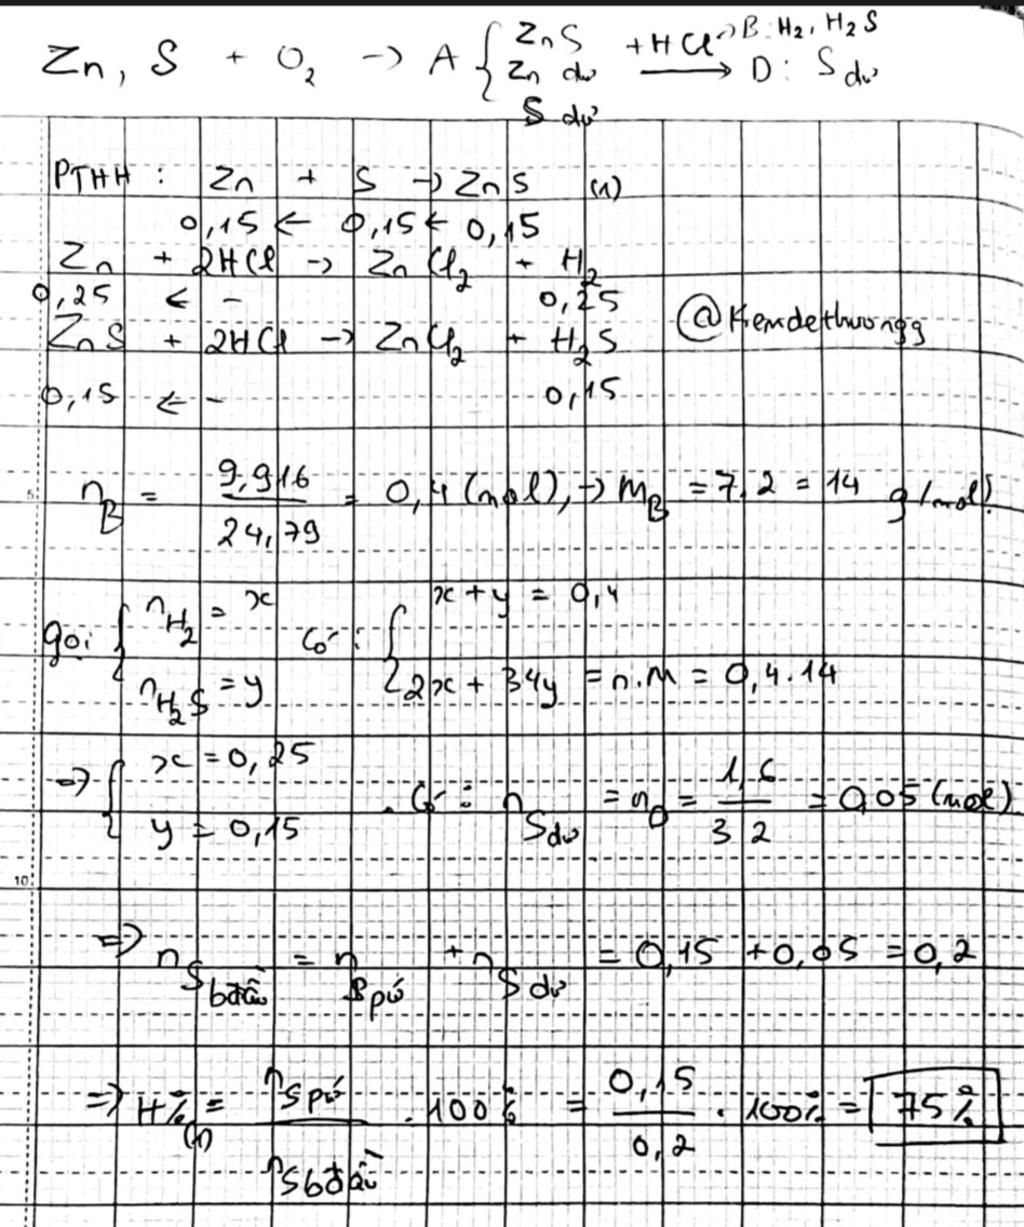 Zn, S + O₂ → A { ZnS +HCl → B: H₂, H₂S
Zn dư → D: S dư
S dư
PTHH: Zn + S → ZnS (1)
0,15 ← 0,15 ← 0,15
Zn + 2HCl → ZnCl₂ + H₂
0,25 ← - 0,25
ZnS + 2HCl → ZnCl₂ + H₂S
@Kemdethuongg
0,15 ← - 0,15
5
n_B = 9,916 / 24,79 = 0,4 (mol), → M_B = 7.2 = 14 g/mol)
gọi { n_H₂ = x Có: { x + y = 0,4
n_H₂S = y 2x + 34y = n.M = 0,4.14
⇒ { x = 0,25
y = 0,15
. Có: n_S dư = n_D = 1,6 / 32 = 0,05 (mol)
10
⇒ n_S bđầu = n_S pứ + n_S dư = 0,15 + 0,05 = 0,2
⇒ H%(1) = n_S pứ / n_S bđầu . 100% = 0,15 / 0,2 . 100% = 75%